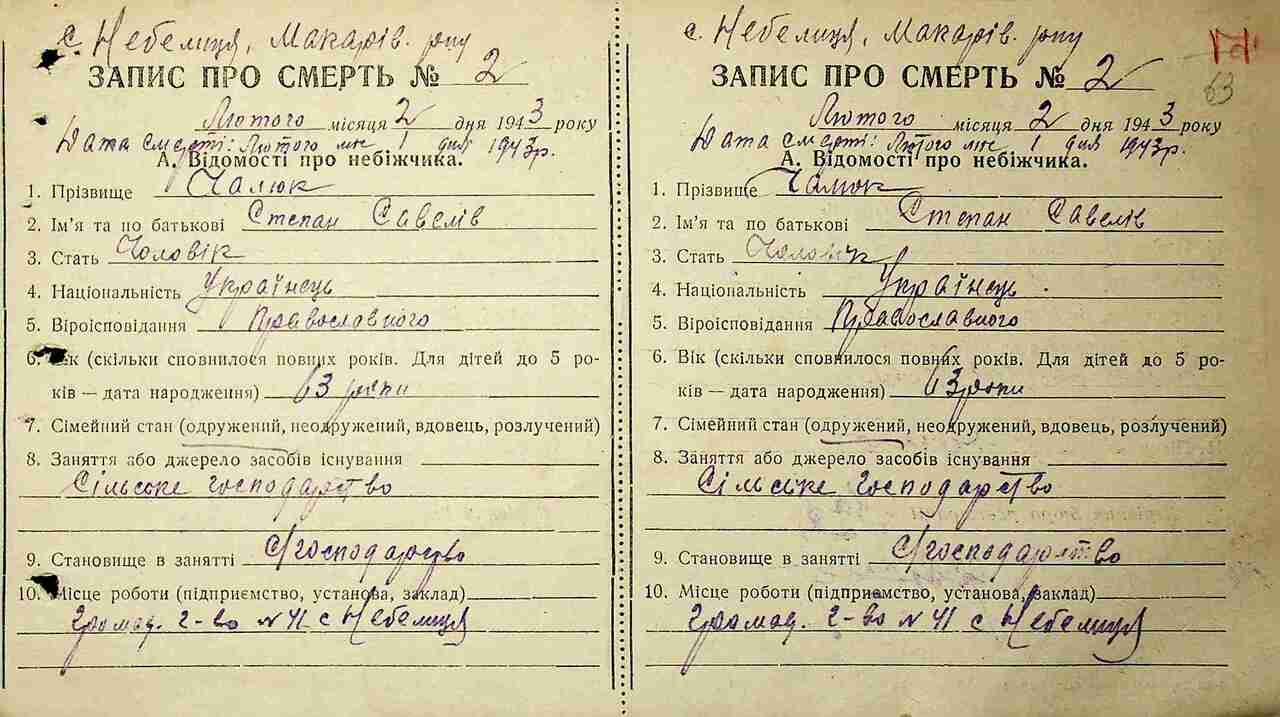 с. Небелиця, Макарів. рну
ЗАПИС ПРО СМЕРТЬ № 2
Лютого місяця 2 дня 1943 року
Дата смерті: Лютого м-ця 1 дня 1943р.
А. Відомості про небіжчика.
1. Прізвище Чалюк
2. Ім’я та по батькові Степан Савелів
3. Стать Чоловік
4. Національність Українець
5. Віроісповідання Православного
6. Вік (скільки сповнилося повних років. Для дітей до 5 ро-
ків — дата народження) 63 роки
7. Сімейний стан (одружений, неодружений, вдовець, розлучений)
8. Заняття або джерело засобів існування
Сільське господарство
9. Становище в занятті С/господарство
10. Місце роботи (підприємство, установа, заклад)
Громад. г-во №41 с Небелиця
с. Небелиця, Макарів. рну
63
ЗАПИС ПРО СМЕРТЬ № 2
Лютого місяця 2 дня 1943 року
Дата смерті: Лютого м-ця 1 дня 1943р.
А. Відомості про небіжчика.
1. Прізвище Чалюк
2. Ім’я та по батькові Степан Савелів
3. Стать Чоловік
4. Національність Українець
5. Віроісповідання Православного
6. Вік (скільки сповнилося повних років. Для дітей до 5 ро-
ків — дата народження) 63 роки
7. Сімейний стан (одружений, неодружений, вдовець, розлучений)
8. Заняття або джерело засобів існування
Сільське господарство
9. Становище в занятті С/господарство
10. Місце роботи (підприємство, установа, заклад)
Громад. г-во №41 с Небелиця